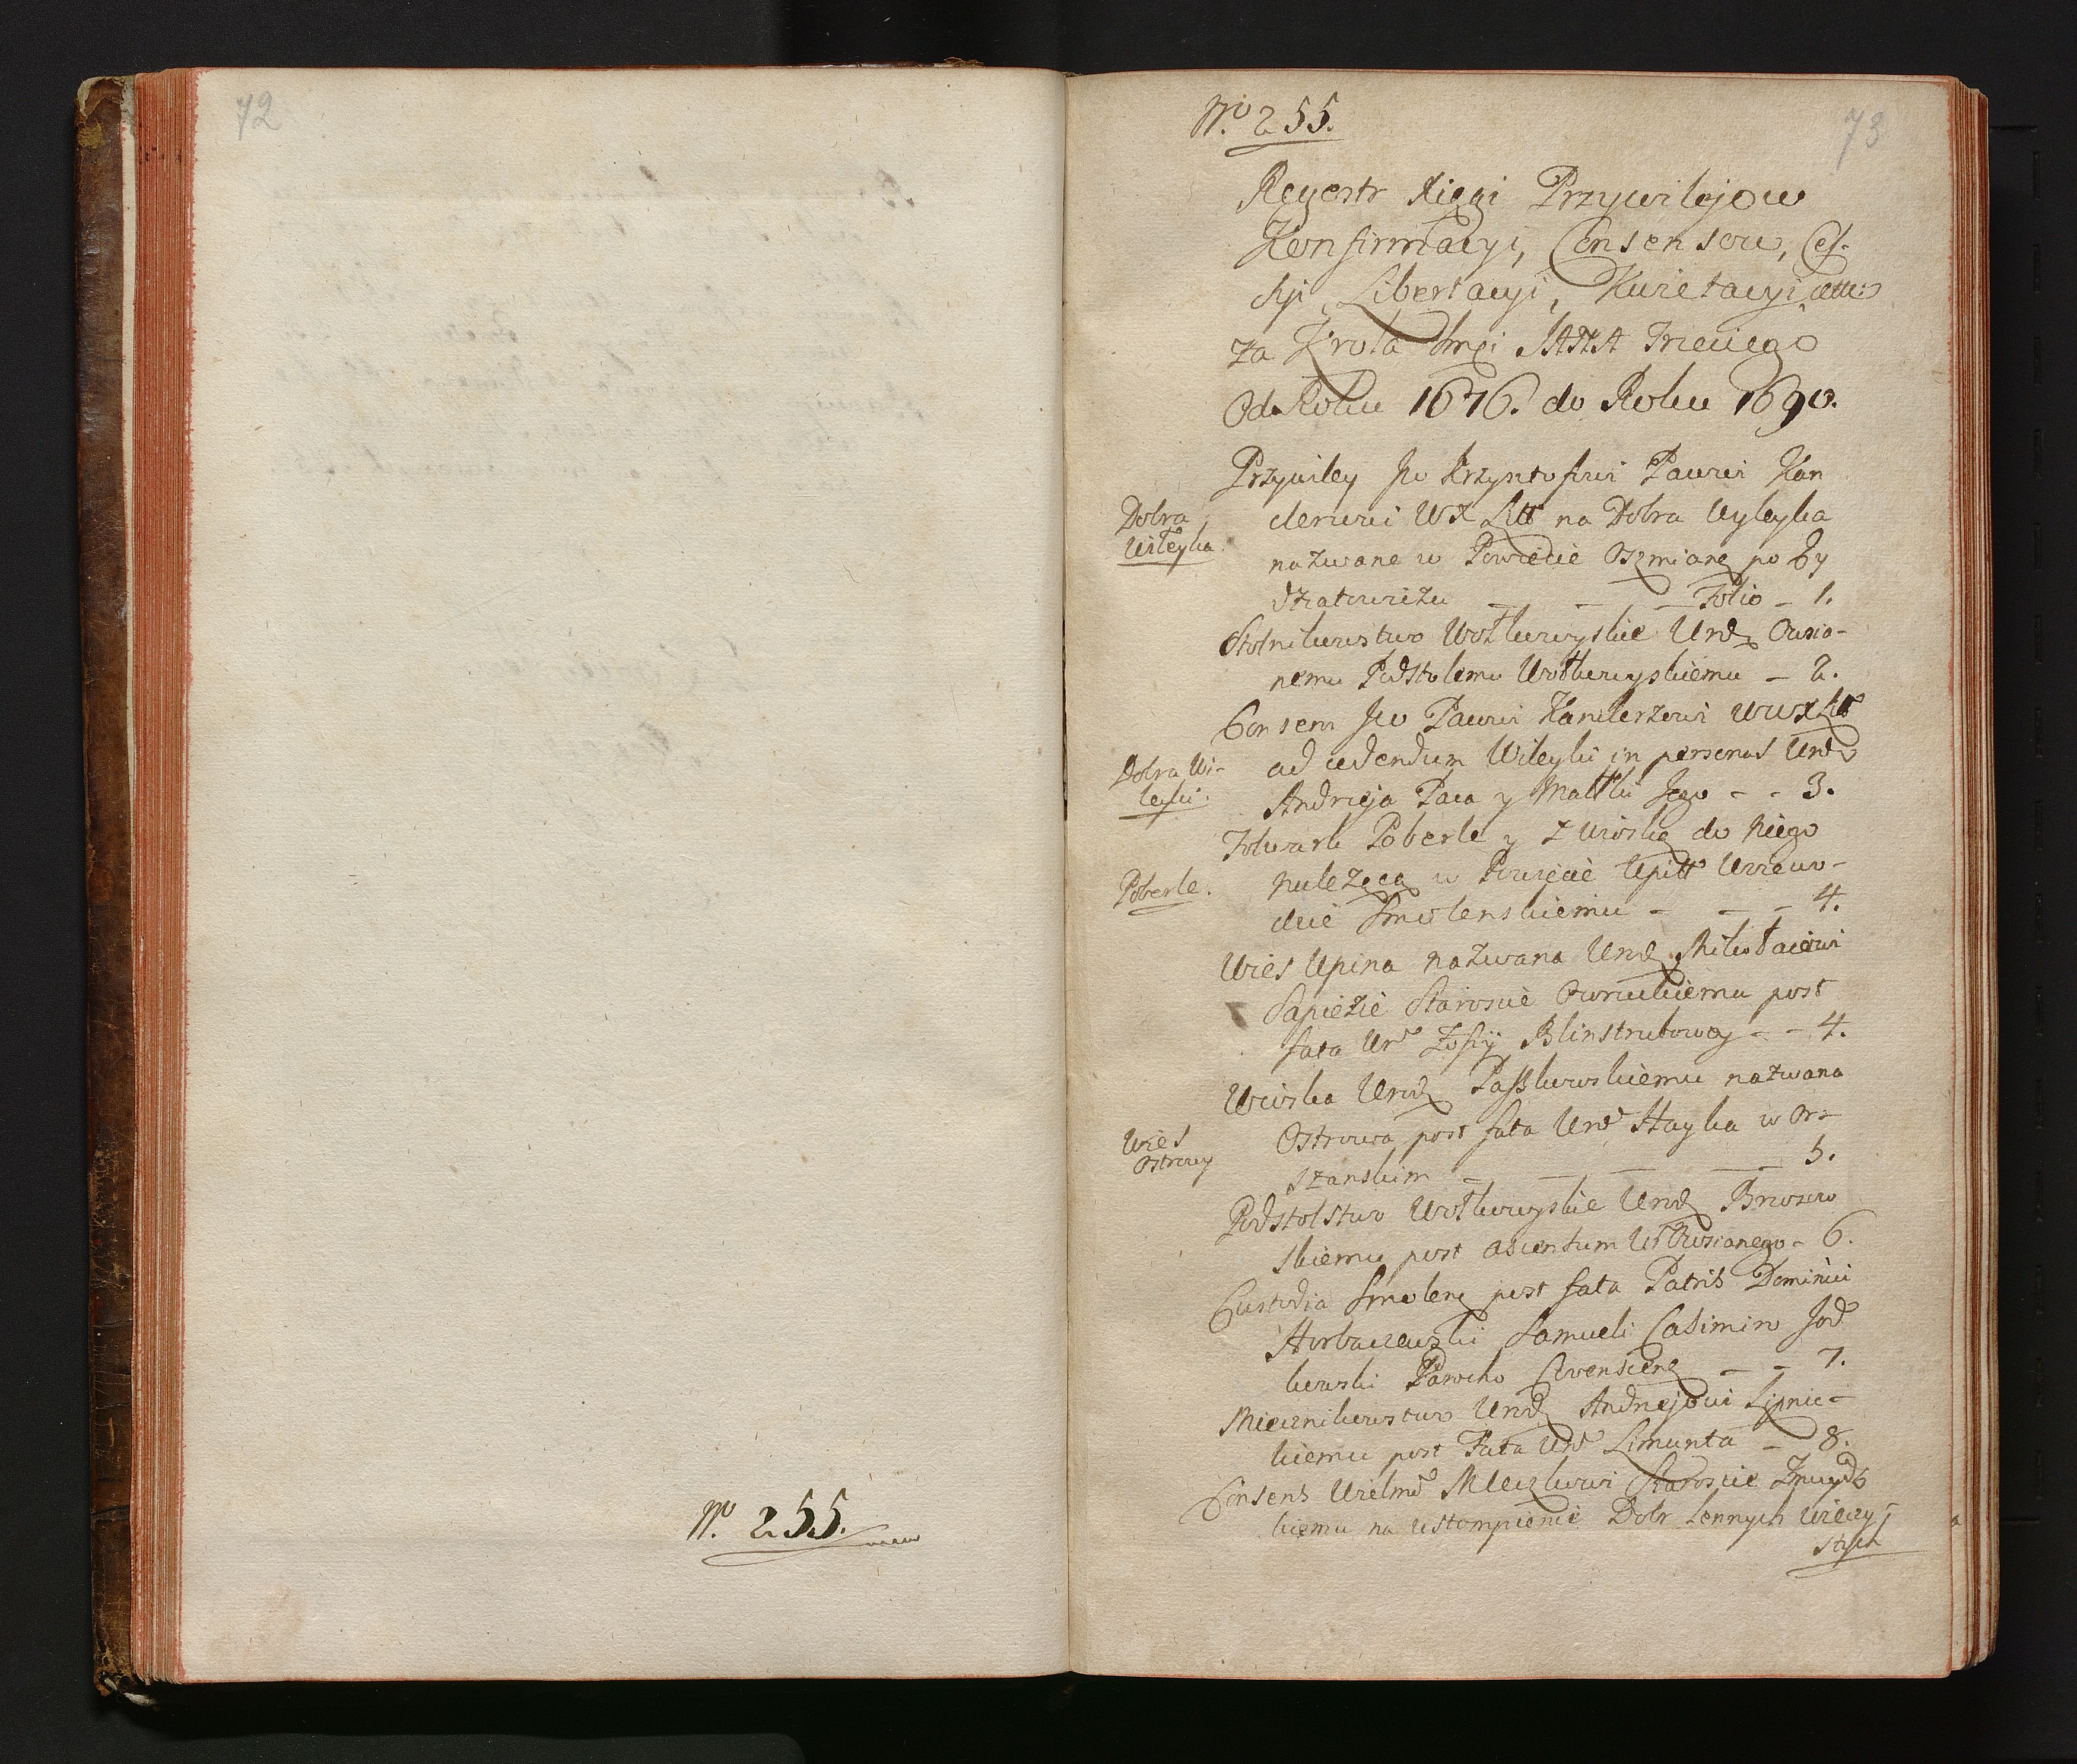 72
Nº 255.
Nº 255.
73
Regestr Xięgi Przywilejow
Konfirmacyi, Consensow, Ces-
syi, Libertacyi, Kwietacyi, cett:
za Krola Jmci JANA Trzeciego
Od Roku 1676. do Roku 1690.
Przywiley Jw Krzysztofowi Pacowi Kan
Dobra
Wileyka.
clerzowi WX Litt na Dobra Wyleyka
nazwane w Powiecie Oszmianę po By
dzatowiżu — — — Folio — 1.
Stolnikowstwo Wołkowyskie Urdz Owsia-
nemu Podstolemu Wołkowyskiemu — 2.
Consens Jw Pacowi Kanclerzowi WWXLitt
Dobra Wi-
leyki.
ad cedendum Wileyki in personas Urdz
Andrzeja Paca y Małłki Jego - - 3.
Folwark Poberle y z Wioską do Niego
Poberle.
należącą w Powiecie Upitt Woiewo-
dzie Smolenskiemu — — — 4.
Wies Upina nazwana Urdz Mikołaiowi
Sapiezie Staroscie Owruckiemu post
fata Urd Zofiy Blinstrubowey - - 4.
Wioska Urdz Paszkowskiemu nazwana
Wies
Ostrowy
Ostrowa post fata Urd Hayka w Or-
szanskim — — — 5.
Podstolstwo Wołkowyskie Urdz Brzozow
skiemu post ascensum Ur Owsianego - 6.
Custodia Smolenę post fata Patris Dominici
Horbaczewski Samueli Casimiro Jod
kowski Parocho - - 7.
Miecznikowstwo Urdz Andrzejowi Lipnic-
kiemu post Fata Urd Limunta - 8.
Consens Wielmd Mleczkowi Staroscie Zmuydz
kiemu na ustompienie Dobr Lennych Wieczy-
stych